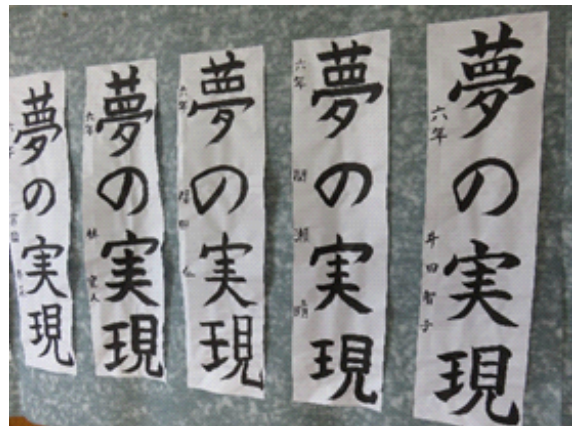 夢の実現
六年
井田智子
夢の実現
六年
間瀬 晴
夢の実現
六年
夢の実現
六年
夢の実現
六年